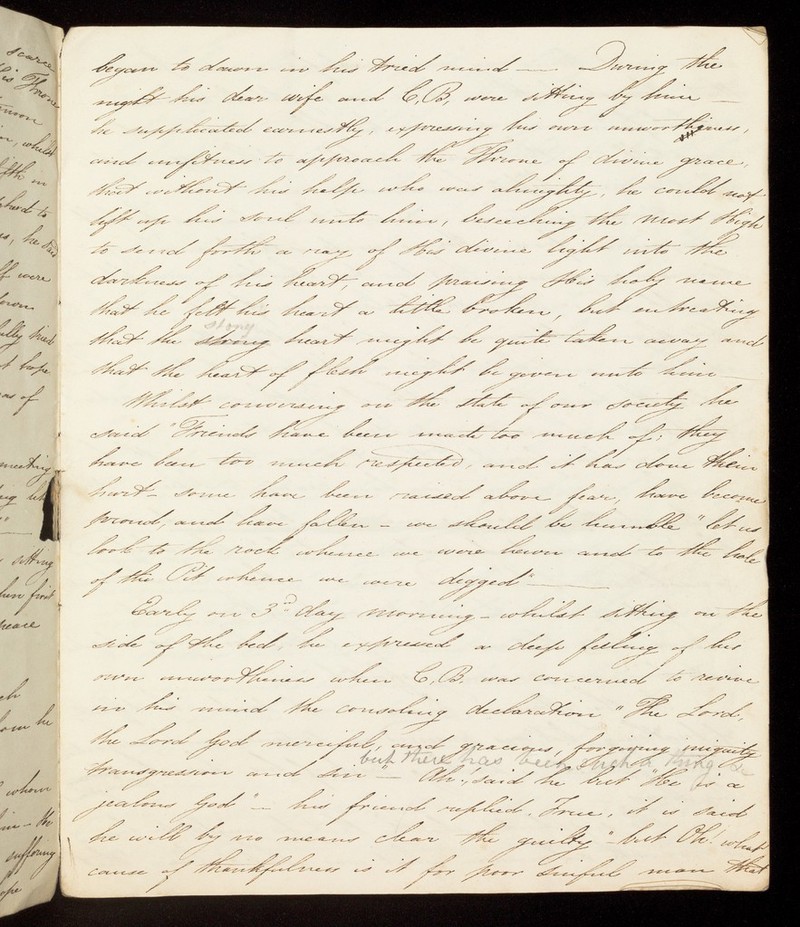 scarce
his Throne
whilst
fifth in
he said
ff were
own
fully
hope
as of
meeting
sitting
when first
peace
whom he
whom
in - the
suffering
began to dawn in his tried mind — During the
night his dear wife and C.B. were sitting by him —
he supplicated earnestly, expressing his own unworthiness,
and unfitness to approach the Throne of divine grace,
that without his help who was almighty, he could not
lift up his soul unto him, beseeching the most High
to send forth a ray of His divine light into the
darkness of his heart, and praising His holy name
that he felt his heart a little broken, but entreating
stony
that the strong heart might be quite taken away and
that the heart of flesh might be given unto him —
Whilst conversing on the state of our society he
said "Friends have been made too much of; they
have been too much respected, and it has done them
hurt - some have been raised above fear, have become
proud, and have fallen - we should be humble "let us
look to the rock whence we were hewn and to the hole
of the Pit whence we were digged" —
Early on 3rd day morning - whilst sitting on the
side of the bed, he expressed a deep feeling of his
own unworthiness when C.B. was concerned to revive
in his mind the consoling declaration "The Lord,
the Lord God merciful, and gracious, forgiving iniquity
but there has been such a thing &
transgression and sin" — Ah! said he but "He is a
jealous God" — his friend replied, True, it is said
he will by no means clear the guilty" - but Oh! what
cause of thankfulness is it for poor sinful man that